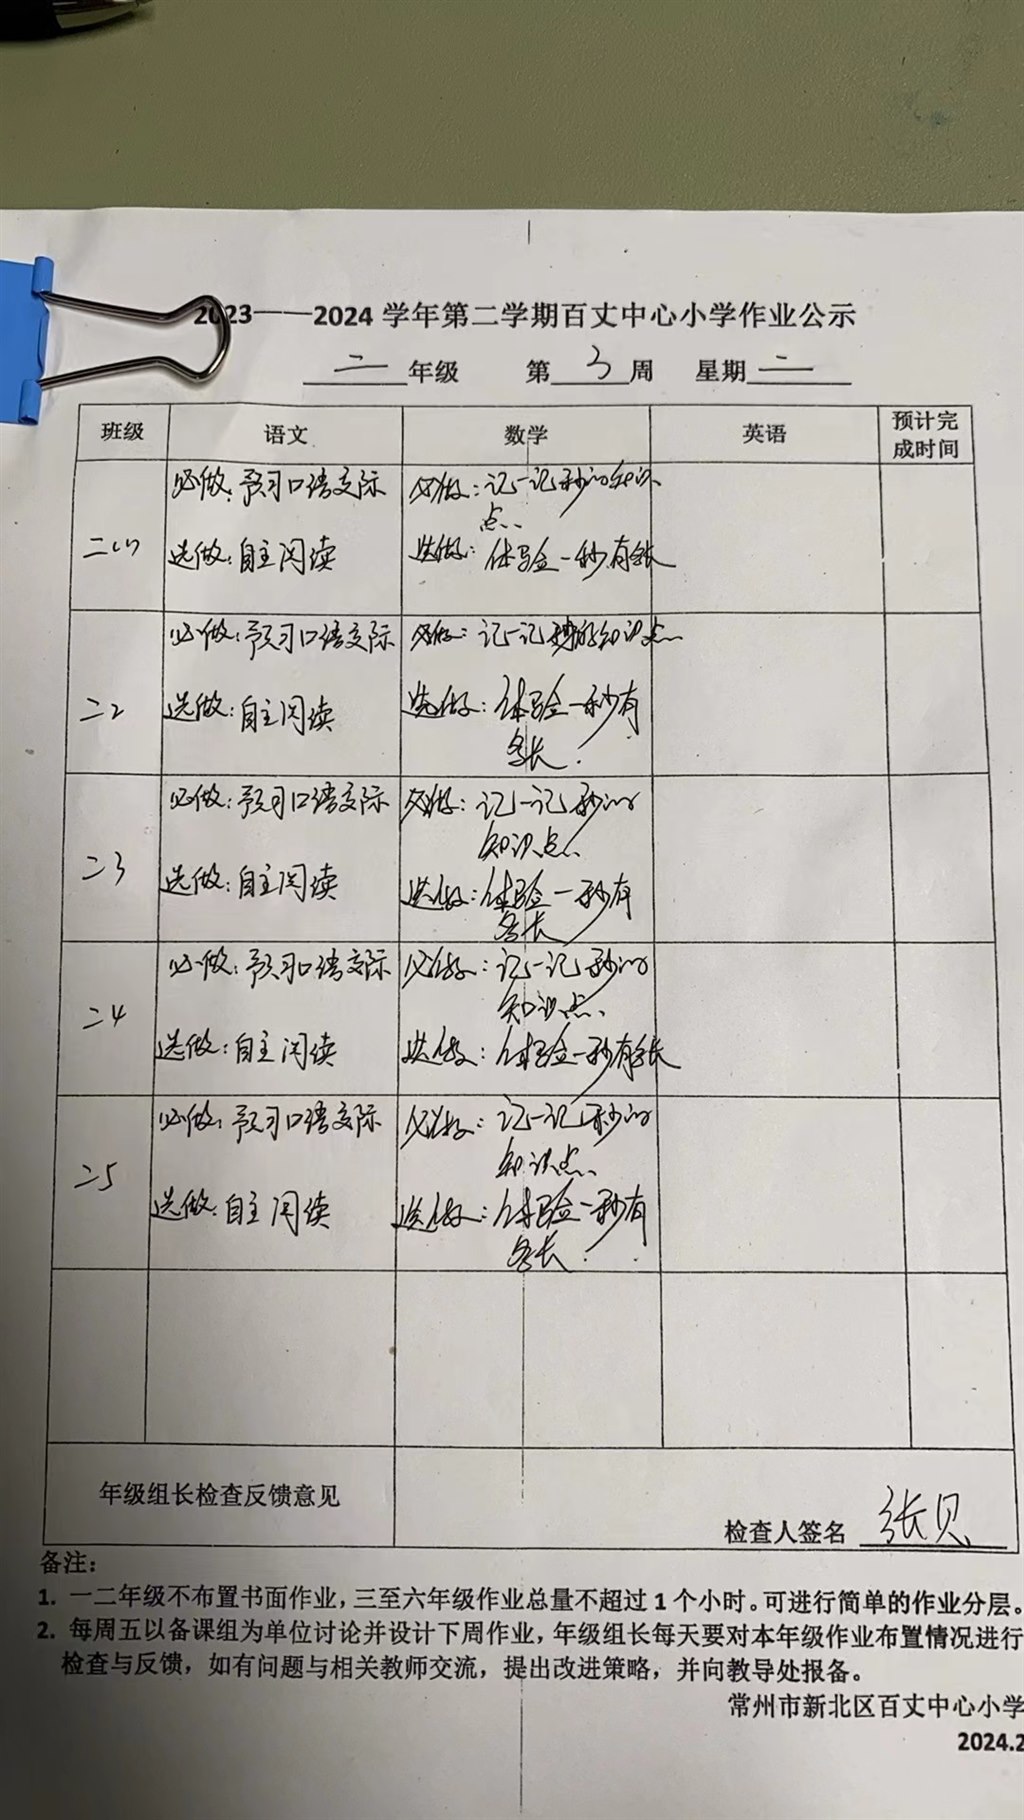 2023——2024 学年第二学期百丈中心小学作业公示
二 年级 第 3 周 星期 二
班级 语文 数学 英语 预计完成时间
二(1)
必做:预习口语交际
选做:自主阅读
必做:记一记秒的知识
点.
选做:体验一秒有多长
二2
必做:预习口语交际
选做:自主阅读
必做:记一记秒的知识点.
选做:体验一秒有
多长.
二3
必做:预习口语交际
选做:自主阅读
必做:记一记秒的
知识点.
选做:体验一秒有
多长
二4
必做:预习口语交际
选做:自主阅读
必做:记一记秒的
知识点.
选做:体验一秒有多长
二5
必做:预习口语交际
选做:自主阅读
必做:记一记秒的
知识点.
选做:体验一秒有
多长.
年级组长检查反馈意见
检查人签名 张贝
备注:
1. 一二年级不布置书面作业,三至六年级作业总量不超过 1 个小时。可进行简单的作业分层。
2. 每周五以备课组为单位讨论并设计下周作业,年级组长每天要对本年级作业布置情况进行
检查与反馈,如有问题与相关教师交流,提出改进策略,并向教导处报备。
常州市新北区百丈中心小学
2024.2